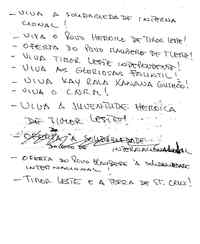 - VIVA A SOLIDARIEDADE INTERNA
CIONAL!
- VIVA O POVO HEROICO DE TIMOR LESTE!
- OFERTA DO POVO MAUBERE DE T. LESTE!
- VIVA TIMOR LESTE INDEPENDENTE!
- VIVA AS GLORIOSAS FALINTIL!
- VIVA KAY RALA XANANA GUSMÃO!
- VIVA O C.N.R.M.!
- VIVA A JUVENTUDE HEROICA
DE TIMOR LESTE!
- OFERTA À SOLIDARIEDADE
INTERNACIONAL
- OFERTA DO POVO MAUBERE À SOLIDARIEDADE
INTERNACIONAL!
- TIMOR LESTE E A TERRA DE ST. CRUZ!